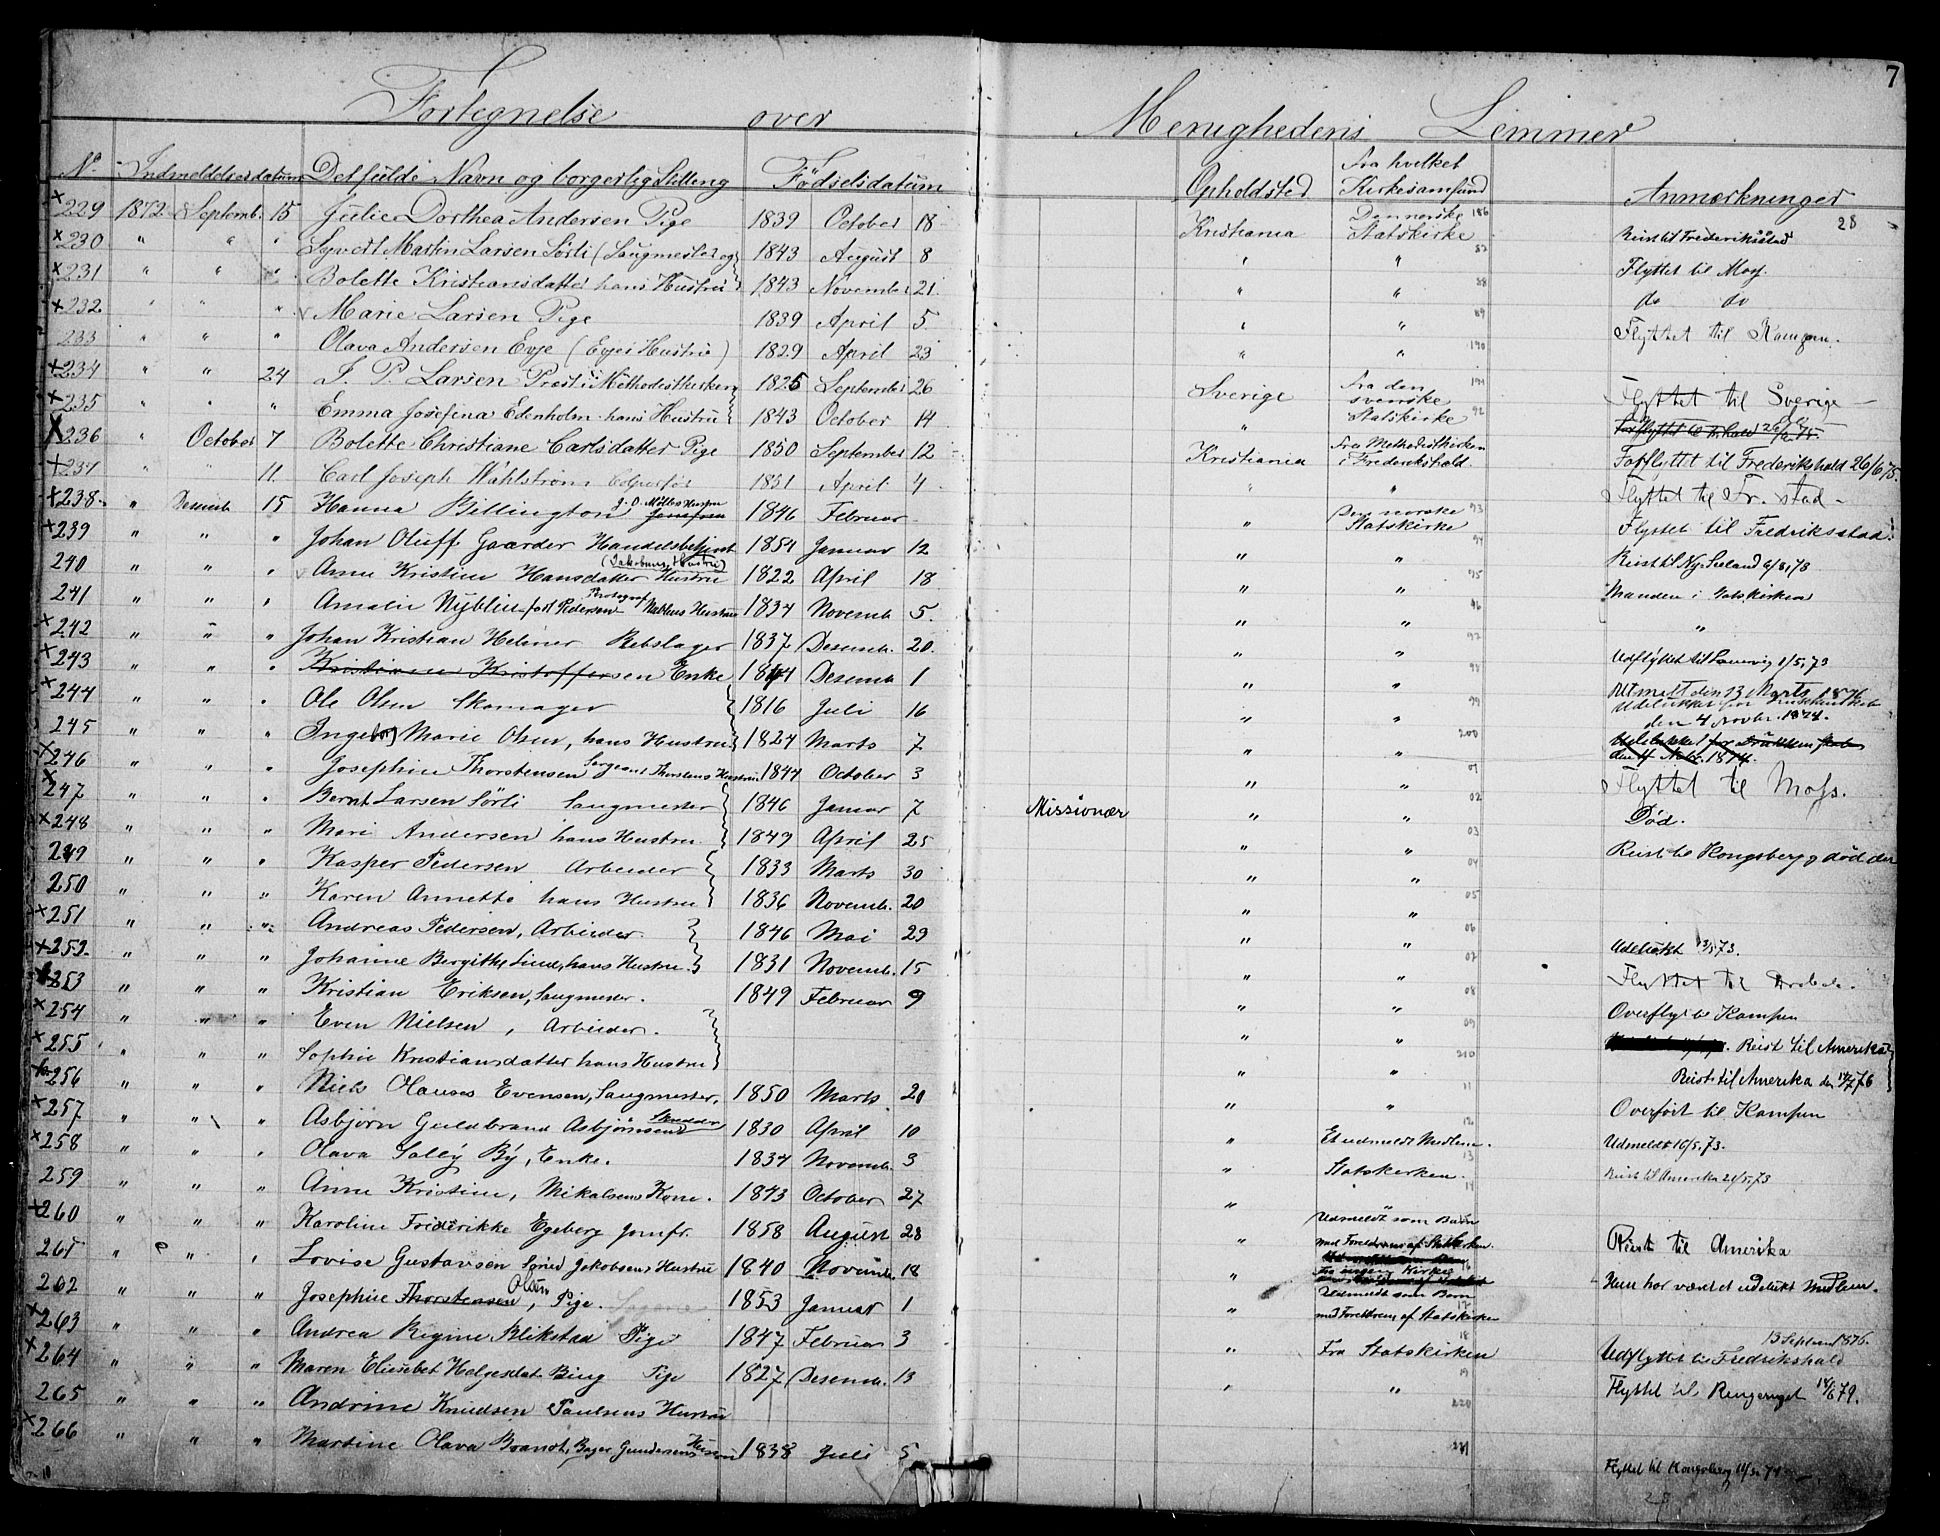 7
Fortegnelse over Menighedens Lemmer
No. Indmeldelsesdatum Det fulde Navn og borgerlig Stilling Fødselsdatum Opholdsted Fra hvilket Kirkesamfund Anmærkninger
28
×229 1872 Septemb. 15 Julie Dorthea Andersen Pige 1839 October 18 Kristiania Den norske Statskirke 186 Reist til Frederiksstad
×230 " " " Syvert Martin Larsen Sörli (Saugmester og 1843 August 8 " " 87 Flyttet til Moss.
×231 " " " Bolette Kristiansdatter hans Hustru 1843 November 21 " " 88 do do
×232 " " " Marie Larsen Pige 1839 April 5 " " 89 Flyttet til Kampen.
233 " " " Olava Andersen Evje (Evjes Hustru) 1829 April 23 " " 190
×234 " " 24 J. P. Larsen Præst i Methodistkirken 1825 September 26 Sverige fra den svenske Statskirke 191 Flyttet til Sverige
×235 " " " Emma Josefina Edenholm hans Hustru 1843 October 14 " 92
×236 " October 7 Bolette Christiane Carlsdatter Pige 1850 September 12 Kristiania fra Methodistkirken i Frederikshald. Forflyttet til Frederikshald 26/6 75.
×237 " " 11. Carl Joseph Wahlström Colportör 1831 April 4 " " Flyttet til Fr. stad
×238 " Desemb. 15 Hanna Billington J. O. Möllers Hustru 1846 Februar " Den norske Statskirke 93 Flyttet til Fredriksstad.
×239 " " " Johan Oluff Gaarder Handelsbetjent 1854 Januar 12 " " 94 Reist til Ny Seeland 6/8, 78
240 " " " Anne Kristine Hansdatter (Jakobsens Hustru) Hustru 1822 April 18 " " 95 Manden i Statskirken
241 " " " Amalie Nyblin föd Pedersen Fotograf Nyblins Hustru 1834 Novemb. 5. " " 96 "
×242 " " " Johan Kristian Helmer Rebslager 1837 Desemb. 20. " " 97 Udflyttet til Laurvig 1/5, 73
×243 " " " Kristiane Kristoffersen Enke 1841 Desemb 1 " " 98 Utmeldt den 13 Marts 1876
×244 " " " Ole Olsen Skomager 1816 Juli 16 " " 99 Udelukket for den 4 Novbr. 1874.
245 " " " Ingeborg Marie Olsen, hans Hustru 1824 Marts 7 " " 200 Udelukket for den 4 Novbr. 1874.
×246 " " " Josephine Thorstensen Sergeant Thorstens Hustru 1844 October 3 " " 01 Flyttet til Moss.
×247 " " " Bernt Larsen Sörli Saugmester 1846 Januar 7 Missionær " " 02 Död.
×248 " " " Mari Andersen hans Hustru 1849 April 25 " " 03 Reist til Kongsberg og död der
249 " " " Kasper Pedersen Arbeider 1833 Marts 30 " " 04
250 " " " Karen Annette hans Hustru 1836 Novemb. 20 " " 05
×251 " " " Andreas Pedersen, Arbeider. 1846 Mai 29 " " 06 Udelukt 73.
×252 " " " Johanne Bergithe Lund, hans Hustru. 1831 Novemb. 15 " " 07 Flyttet til
×253 " " " Kristian Eriksen, Saugmester. 1849 Februar 9 " " 08 Overflyt til Kampen
×254 " " " Even Nielsen, Arbeider. " " 09 Reist til Amerika
×255 " " " Sophie Kristiansdatter hans Hustru " " 210 Reist til Amerika den 76
×256 " " " Niels Olauses Evensen, Saugmester, 1850 Marts 20 " " 11 Overfört til Kampen
×257 " " " Asbjørn Guldbrand Asbjørnsen Skrædder 1830 April 10 " Et udmeldt Medlem. 12 Udmeldt 10/5, 73.
×258 " " " Olava Sally By, Enke. 1834 Novemb. 3 " Statskirken. 13 Reist til Amerika 21/5, 73
259 " " " Anne Kristine, Mikalsens Kone. 1843 October 27 " " 14
×260 " " " Karoline Frederikke Egeberg Jomfr. 1858 August 28 " Udmeldt som Barn med Foreldrene af Statskirken. Reist til Amerika
261 " " " Lovise Gustavsen Smed Jakobsens Hustru 1840 Novemb. 18 " Fra ingen Kirke 16 Hun har været et udelukt Medlem.
262 " " " Josephine Thorstensen Olsen, Pige. 1853 Januar 1 " Udmeldt som Barn med Foreldrene af Statskirken 17
×263 " " " Andrea Regine Blikstad Pige 1847 Februar 3 " Fra Statskirken 18 Udflyttet til Fredrikshald 13 Septem 1876.
×264 " " " Maren Elisebet Helgesdat. Bing Pige 1827 Desemb. 13 " " 19 Flyttet til Ringeriget 14/6 79.
265 " " " Andrine Knudsen Paulsens Hustru 220
×266 " " " Martine Olava Brandt, Bager Gundersens Hustru 1838 Juli 5 221 Flyttet til Kongsberg 11/5, 74